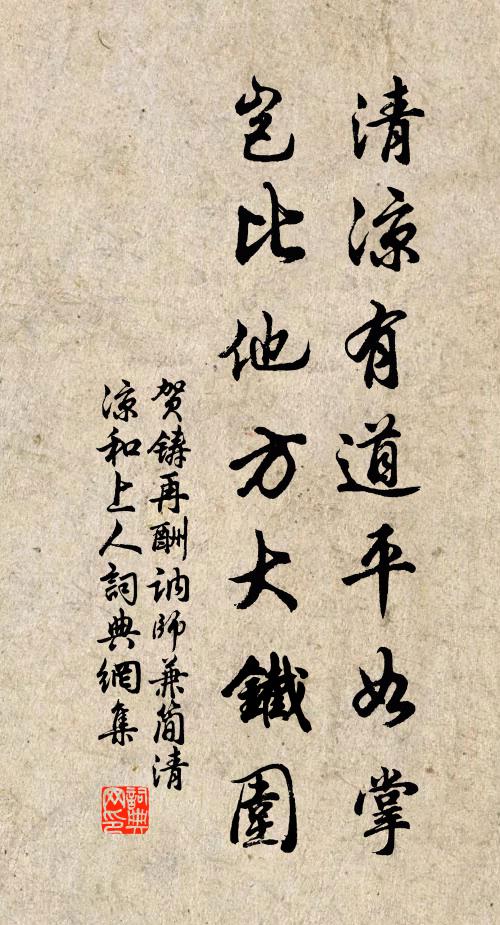 清凉有道平如掌
岂比他方大鐵圍
贺鑄再酬讷師兼简清
凉和上人詞典網集
詞典网印